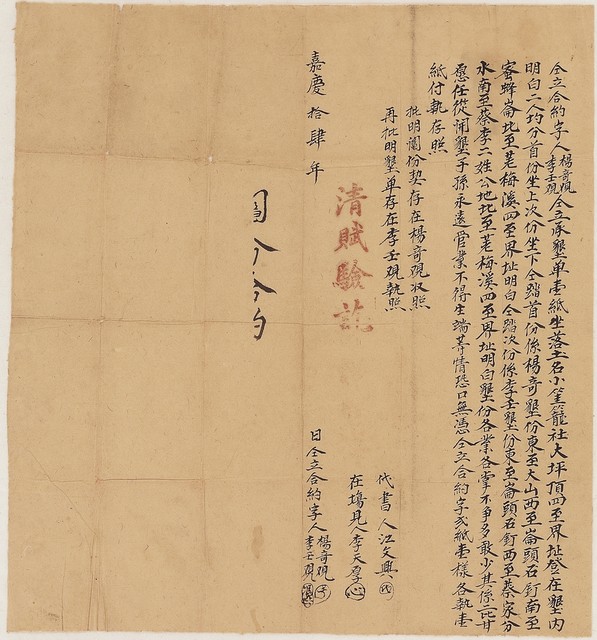 仝立合約字人楊奇覌李壬覌仝立承墾单壹紙坐落土名小基籠社大坪頂四至界址登在墾內
明白二人均分首份坐上次份坐下仝踏首份係楊奇墾份東至大山西至崙頭石釘南至
蜜蜂崙北至荖梅溪四至界址明白仝踏次份係李壬墾份東至崙頭石釘西至蔡家分
水南至蔡李二姓公地北至荖梅溪四至界址明白墾份各業各掌不爭多敢少其係二比甘
愿任從開墾子孫永遠管業不得生端等情恐口無憑仝立合約字弍紙壹樣各執壹
紙付執存照
批明鬮份契存在楊奇覌收照
再批明墾单存在李壬覌執照
代書人江文興
在塲見人李天厚
清賦驗訖
嘉慶拾肆年 日仝立合約字人楊奇覌李壬覌